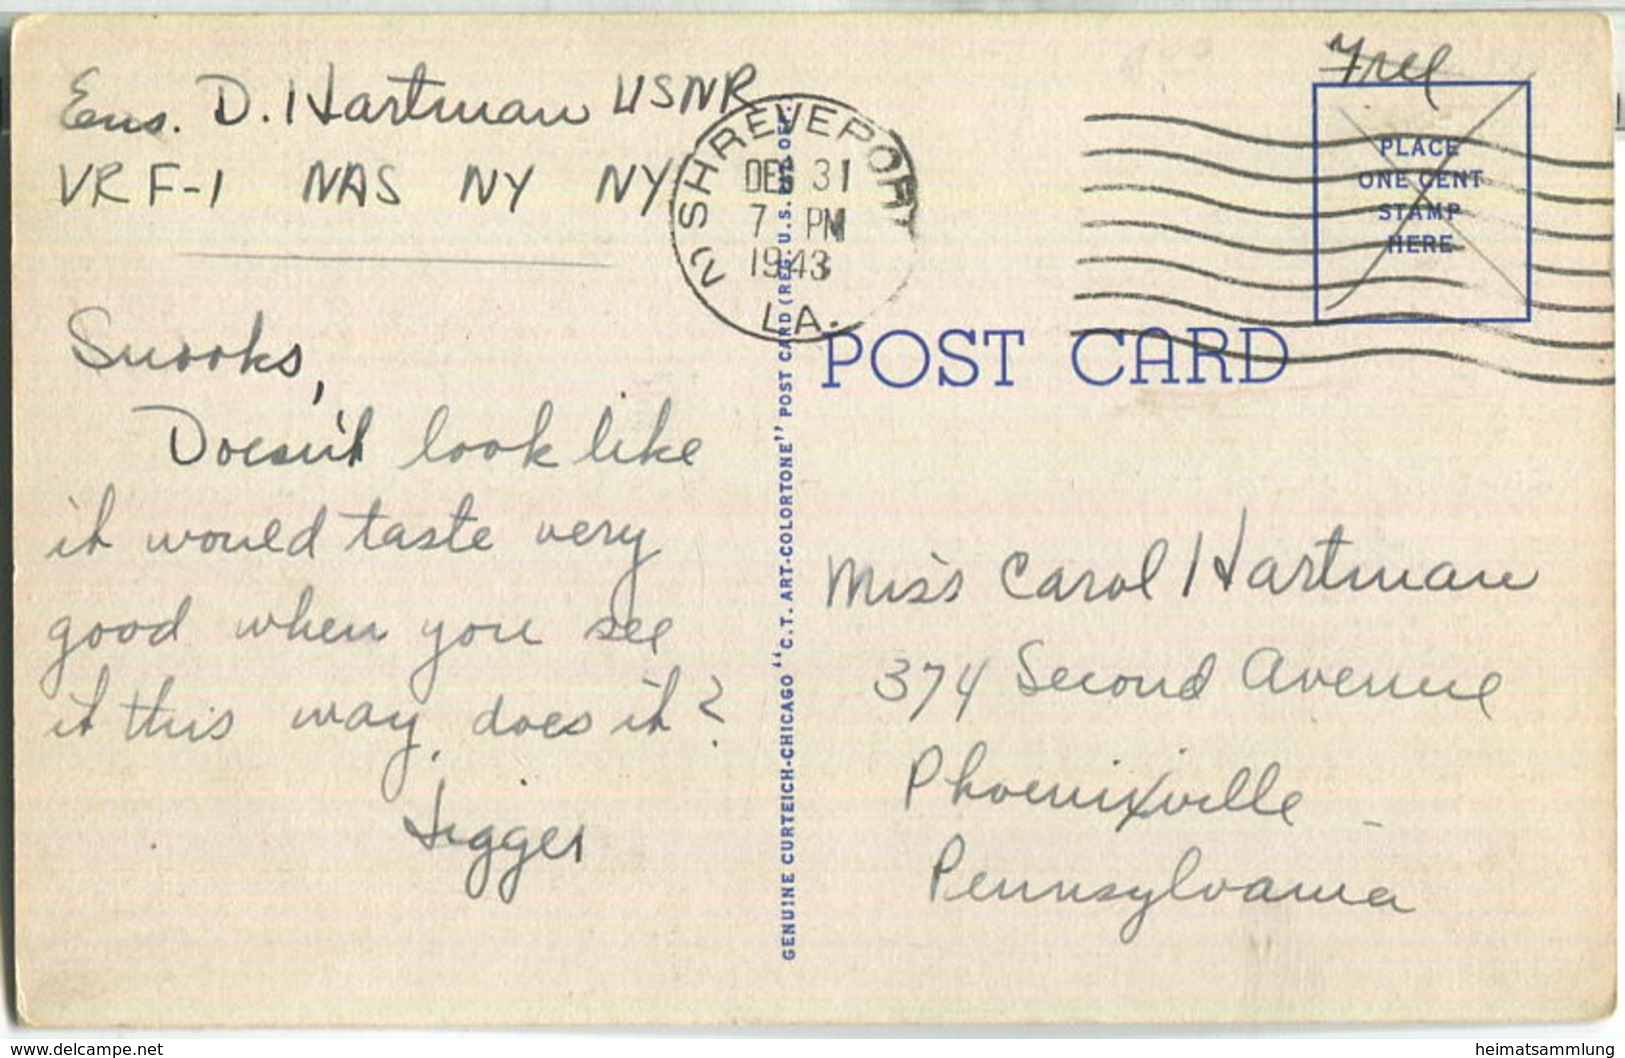 Ens. D. Hartman USNR
VRF-1 NAS NY NY
Snooks,
Doesn't look like
it would taste very
good when you see
it this way, does it?
Jigger
SHREVEPORT
2
DEC 31
7 PM
1943
LA.
GENUINE CURTEICH-CHICAGO "C.T. ART-COLORTONE" POST CARD (REG. U.S. PAT. OFF.)
Free
PLACE
ONE CENT
STAMP
HERE
POST CARD
Miss Carol Hartman
374 Second Avenue
Phoenixville
Pennsylvania
www.delcampe.net
heimatsammlung